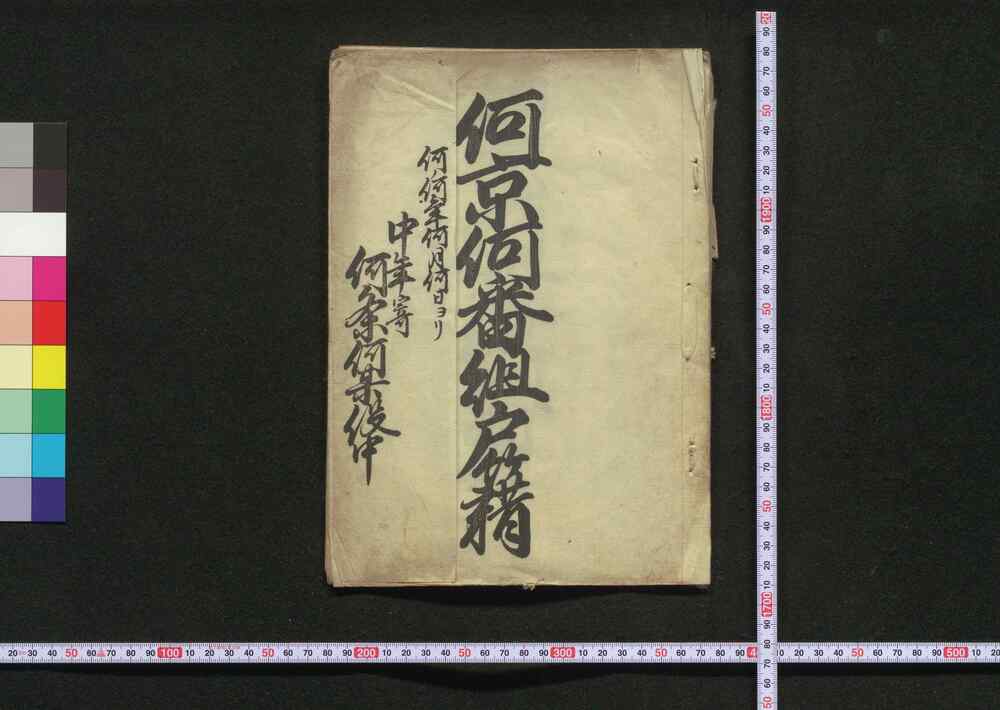 何京何番組戸籍
何何年何月何日ヨリ
中年寄
何条何某役中